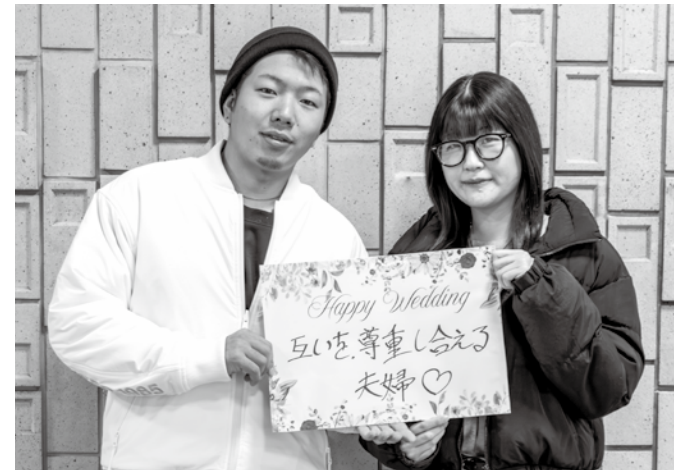 Happy Wedding
互いを尊重し合える
夫婦♡